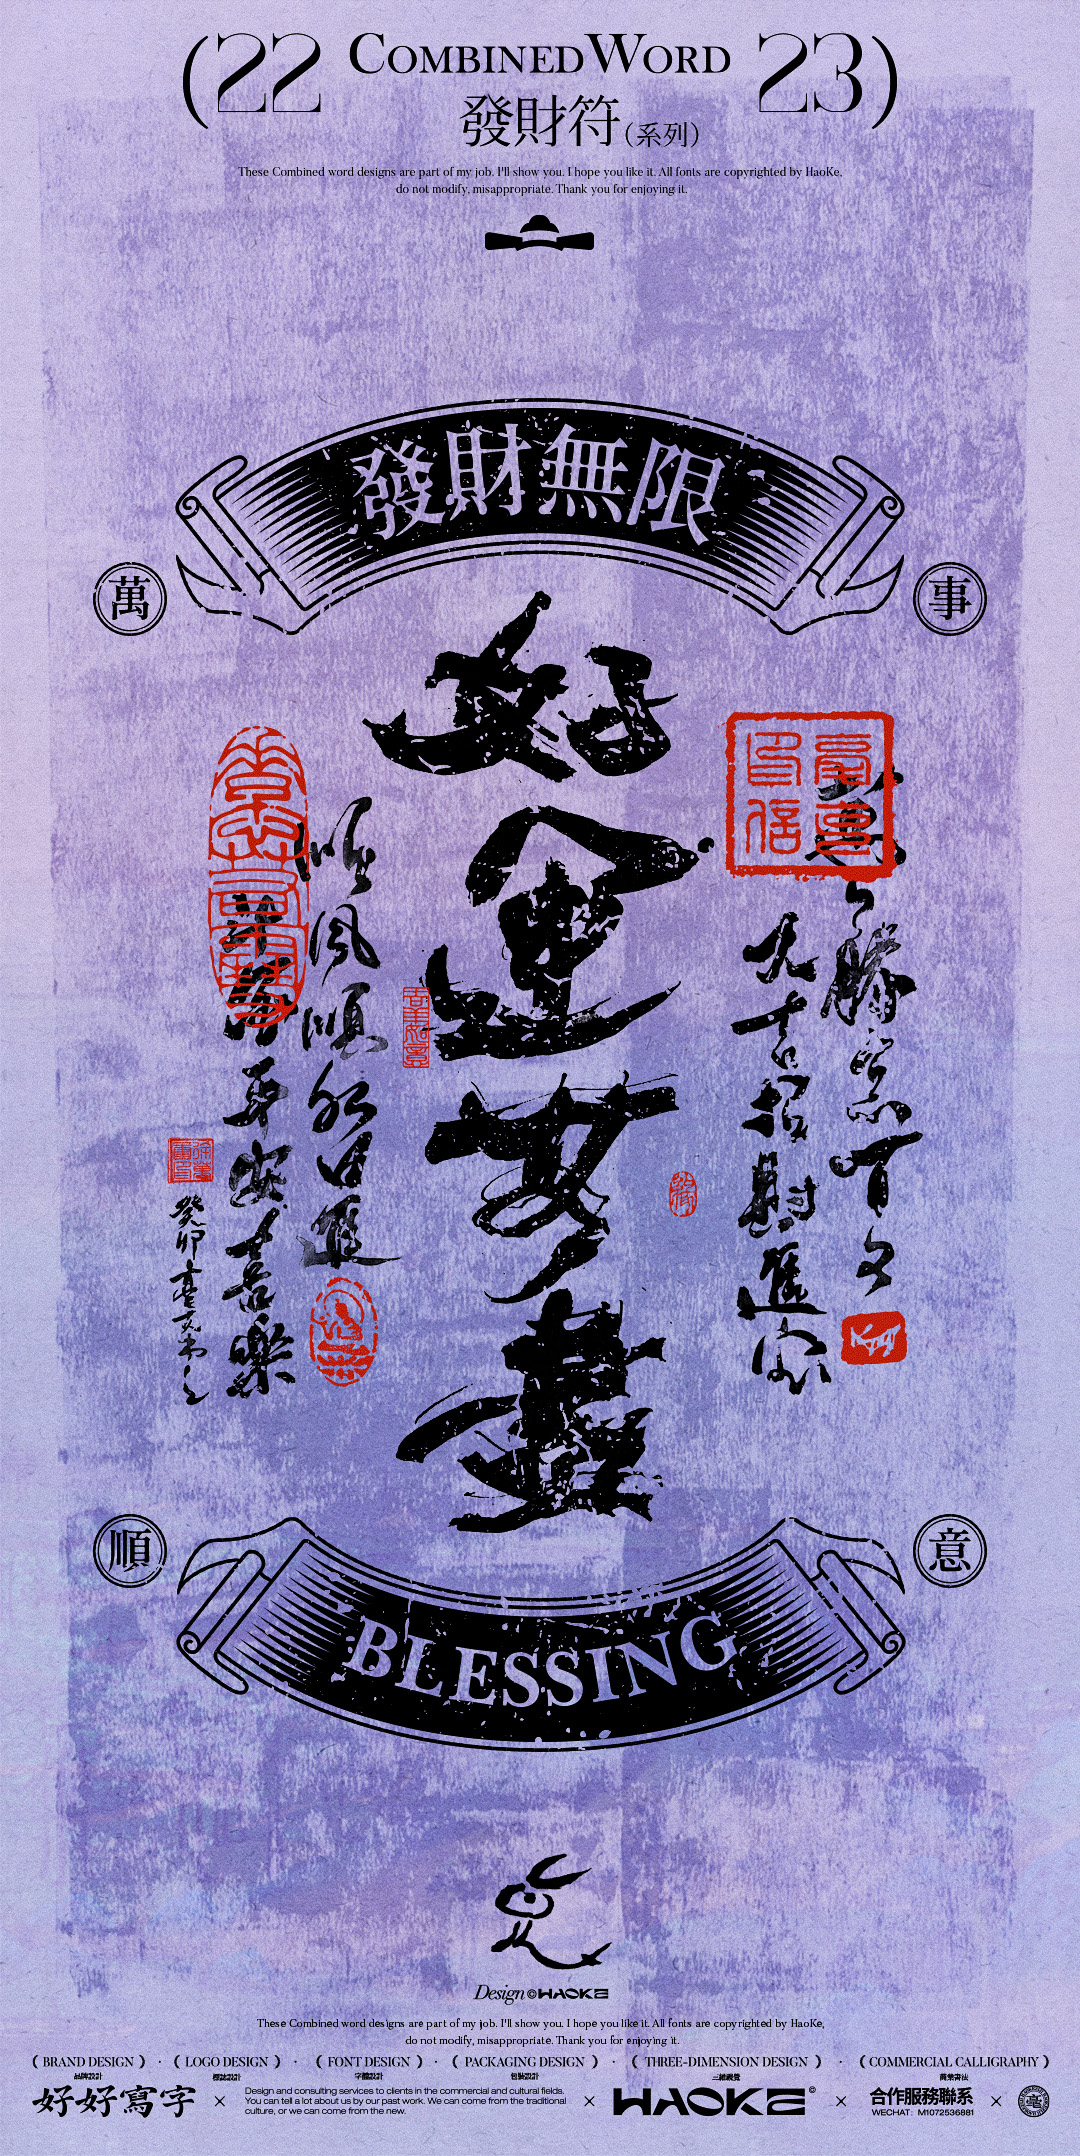 (22 COMBINED WORD 23)
發財符(系列)
These Combined word designs are part of my job. I'll show you. I hope you like it. All fonts are copyrighted by HaoKe,
do not modify, misappropriate. Thank you for enjoying it.
發財無限
萬
事
好
運
無
盡
大吉招財進家
順風順水日進
平安喜樂
癸卯
順
意
BLESSING
Design©HAOKE
These Combined word designs are part of my job. I'll show you. I hope you like it. All fonts are copyrighted by HaoKe,
do not modify, misappropriate. Thank you for enjoying it.
( BRAND DESIGN ) · ( LOGO DESIGN ) · ( FONT DESIGN ) · ( PACKAGING DESIGN ) · ( THREE-DIMENSION DESIGN ) · ( COMMERCIAL CALLIGRAPHY )
品牌設計 標誌設計 字體設計 包裝設計 三維視覺 商業書法
好好寫字 × Design and consulting services to clients in the commercial and cultural fields.
You can tell a lot about us by our past work. We can come from the traditional
culture, or we can come from the new.
× HAOKE© × 合作服務聯系
WECHAT: M1072536881 ×